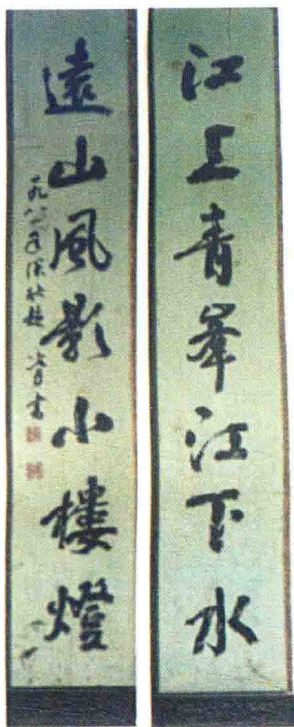 江上青峯江下水
遠山風影小樓燈